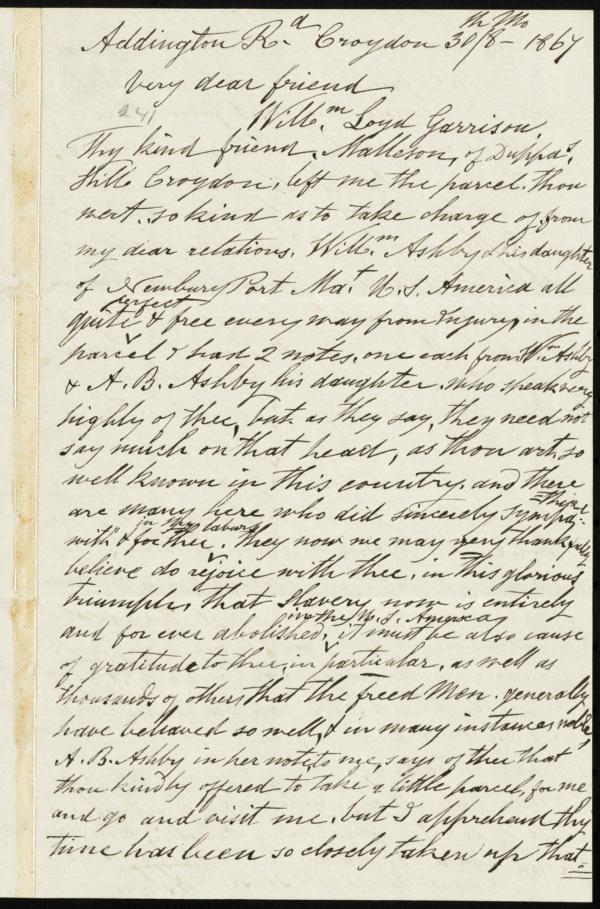 Addington Rd. Croydon 30/8th Mo - 1867
Very dear friend
241
Willm. Loyd Garrison,
Thy kind friend, Malleson, of Duppas,
Hill Croydon, left me the parcel. thou
wert, so kind as to take charge of, from
my dear relations. Willm. Ashby & his daughter
of Newbury Port Mat. U.S. America all
quite perfect & free every way from Injury, in the
parcel I had 2 notes, one each from Wm Ashby
& A. B. Ashby his daughter, who speak very
highly of thee, but as they say, they need not
say much on that head, as thou art, so
well known in this country, and there
are many here who did sincerely sympa-
thize with & for thee in thy labors, they now we may very thankfully
believe do rejoice with thee, in this glorious
triumph, that Slavery now is entirely
and for ever abolished, in the U.S. America, it must be also cause
of gratitude to thee, in particular, as well as
thousands of others that the freed Men. generally
have behaved so well, & in many instances noble,
A. B. Ashby in her note, to me, says of thee that
thou kindly offered to take a little parcel, for me
and go and visit me, but I apprehend thy
time has been so closely taken up that